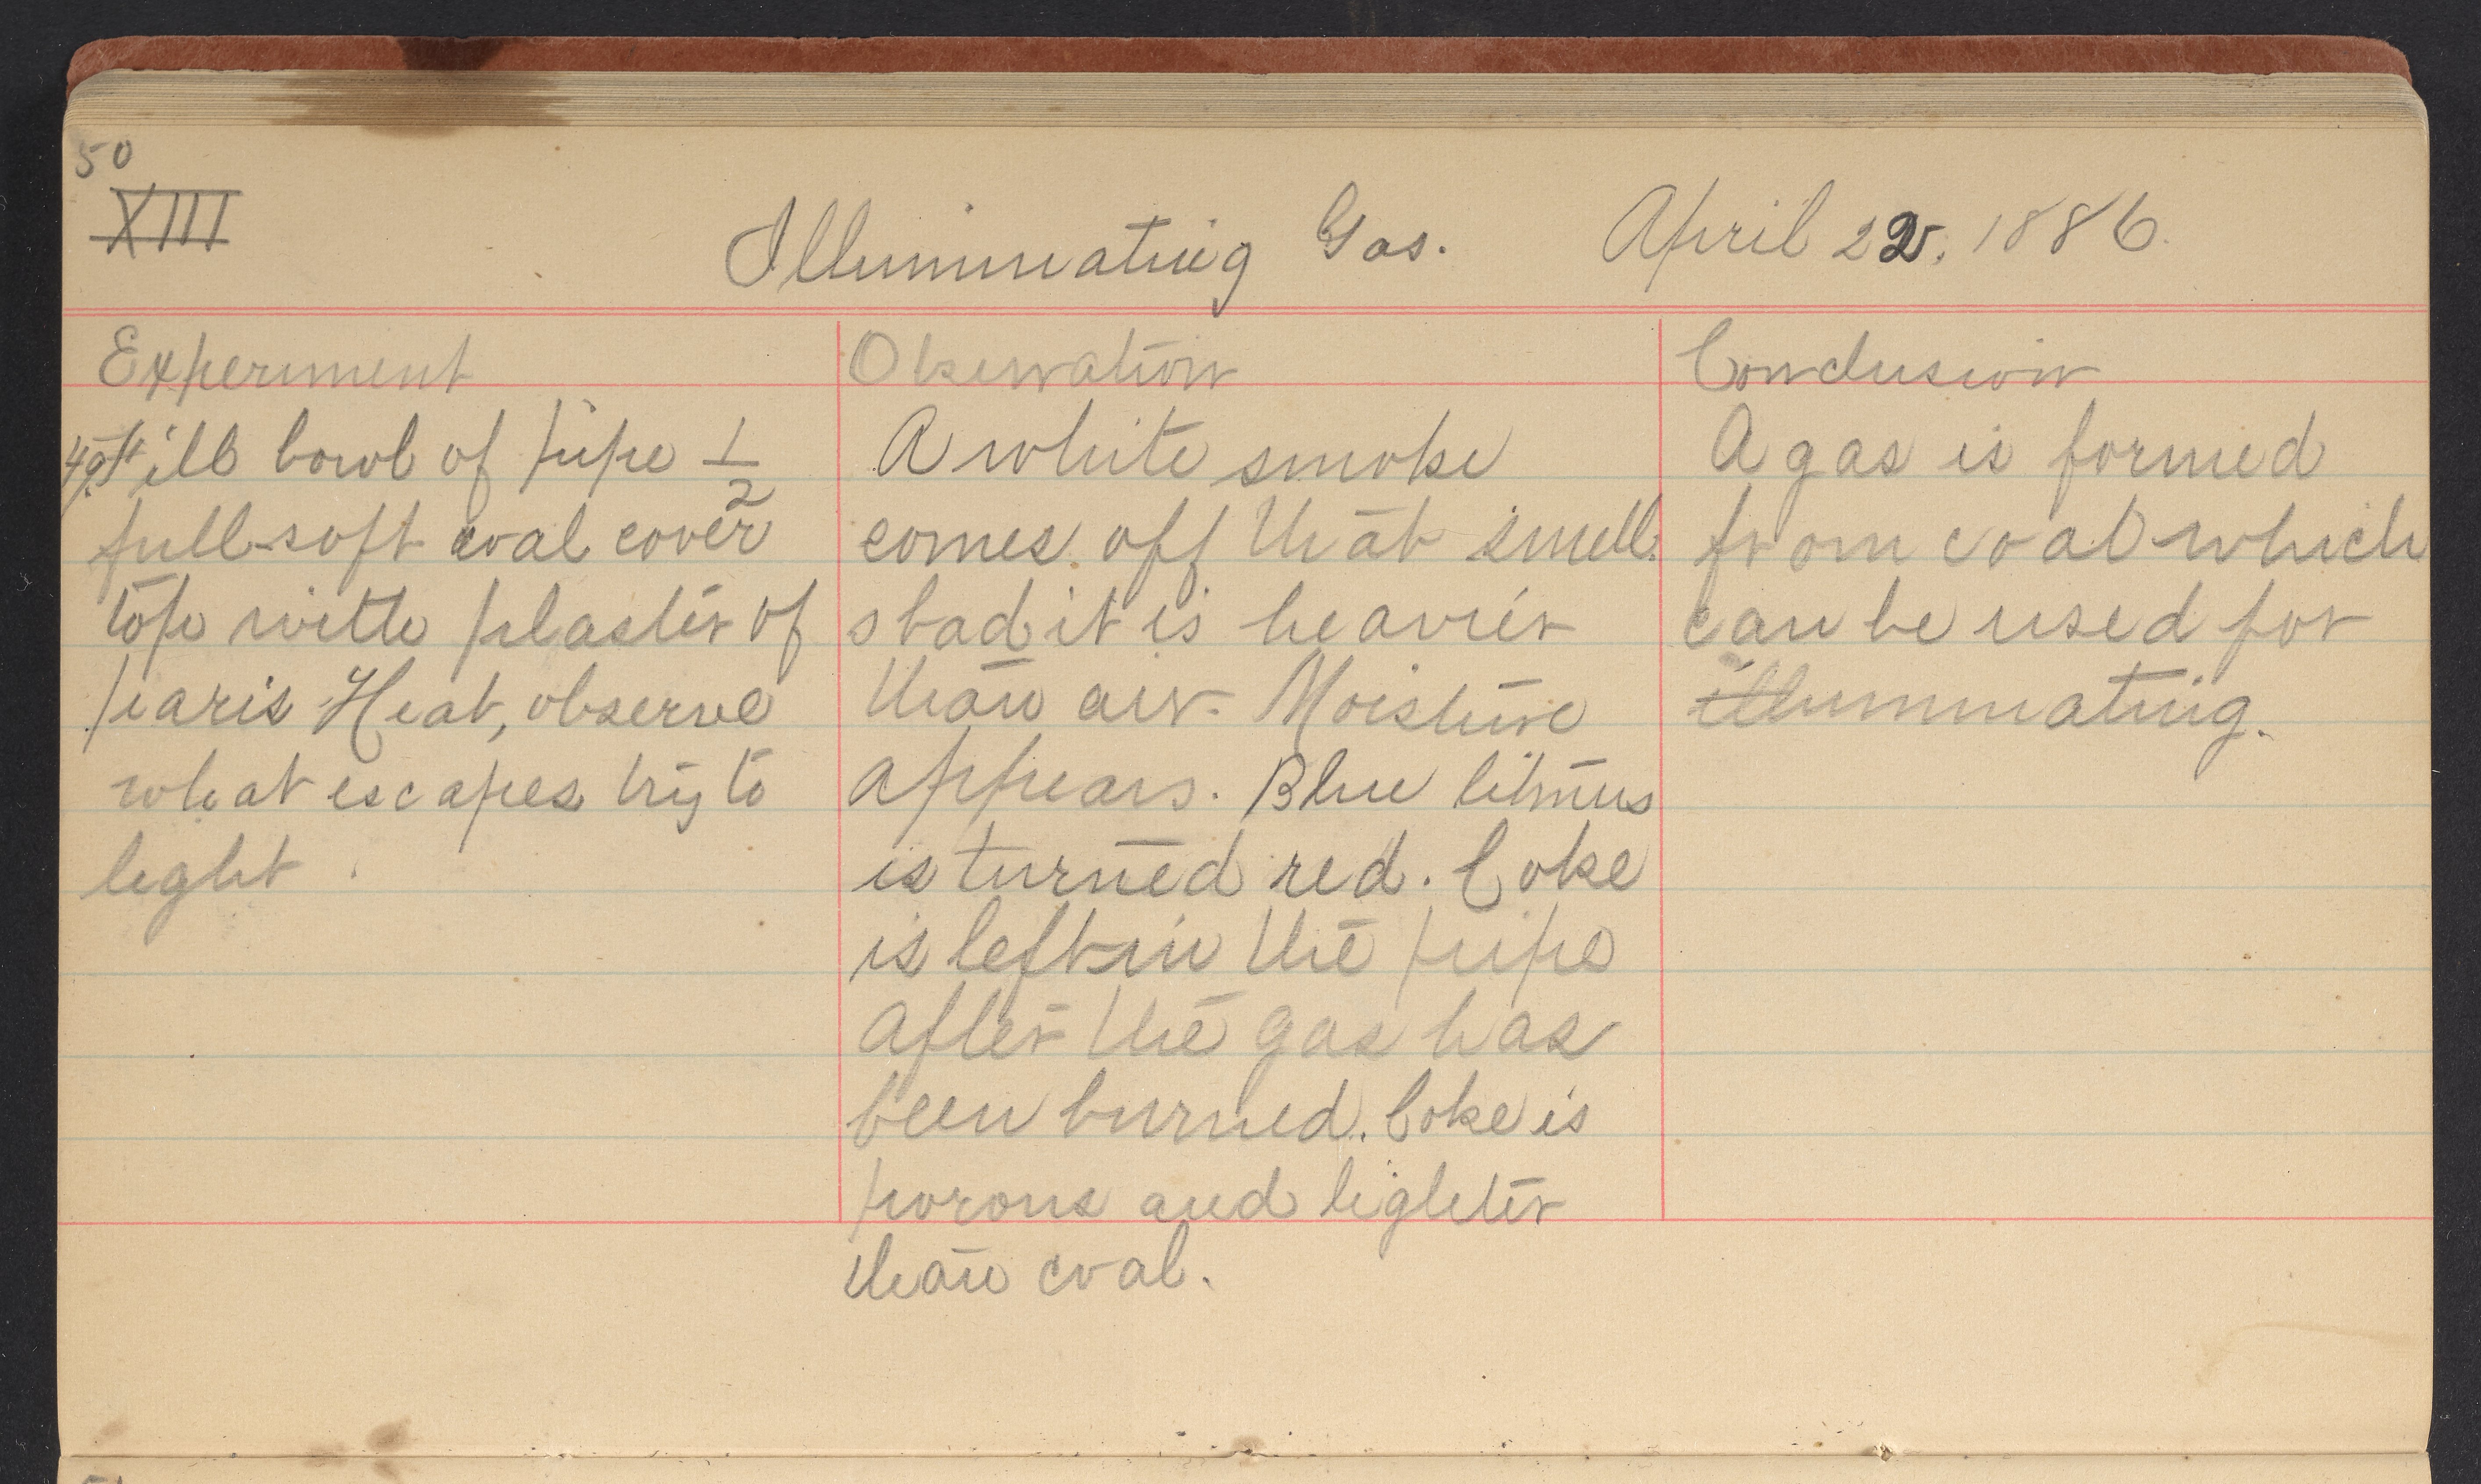 50
XIII
Illuminating Gas. April 22, 1886.
Experiment
49. Fill bowl of pipe 1/2
full soft coal cover
top with plaster of
paris Heat, observe
what escapes try to
light.
Observation
A white smoke
comes off that smell
s bad it is heavier
than air. Moisture
appears. Blue litmus
is turned red. Coke
is left in the pipe
after the gas has
been burned. Coke is
porous and lighter
than coal.
Conclusion
A gas is formed
from coal which
can be used for
illuminating.